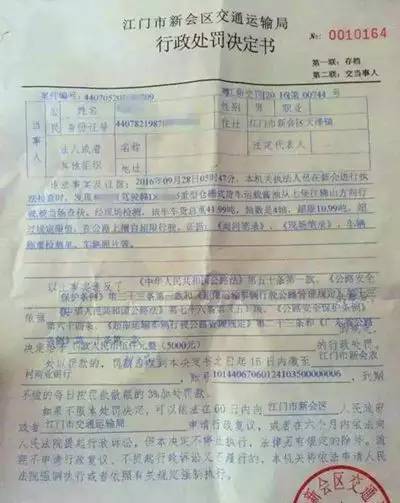 江门市新会区交通运输局
行政处罚决定书
№: 0010164
第一联: 存档
第二联: 交当事人
案件编号: 440705201 709
粤江新交罚[2016]第00744号
当事人
公民
姓名
性别 男 职业
身份证号 440782198
住址 江门市新会区大泽镇
法人或者其他组织
名称
法定代表人
违法事实及证据: 2016年09月28日05时47分, 本机关执法人员在新会进行执
法检查时, 发现 驾驶粤J 5重型仓栅式货车运载酱油从七堡往佛山方向行
驶,被当场查获。经现场检测, 该车车货总重41.99吨, 轴数是4轴, 超限10.99吨,
过境限值, 在公路上擅自超限行驶。证据: 《询问笔录》、《现场笔录》、车辆
称重检测单、车辆照片等。
以上事实违反了 《中华人民共和国公路法》第五十条第一款、《公路安全
保护条例》第三十三条第一款和《超限运输车辆行驶公路管理规定》
依据 《中华人民共和国公路法》第七十六条第五项、《公路安全保护条例》
第六十四条、《超限运输车辆行驶公路管理规定》第二十三条和《广
决定给予 罚款人民币伍仟元整(5000元) 的行政处罚。
处以罚款的, 罚款自收到本决定书之日起15日内缴至 江门市新会农
村商业银行 , 账号 10144067060124103500000006 , 到期
不缴的每日按罚款数额的3%加处罚款。
如果不服本处罚决定, 可以依法在60日内向 江门市新会区 人民政府
或者 江门市交通运输局 申请行政复议, 或者在六个月内依法向
人民法院提起行政诉讼, 但本决定不停止执行, 法律另有规定的除外。逾
期不申请行政复议、不提起行政诉讼又不履行的, 本机关将依法申请人民
法院强制执行或者依照有关规定强制执行。
新会区交通